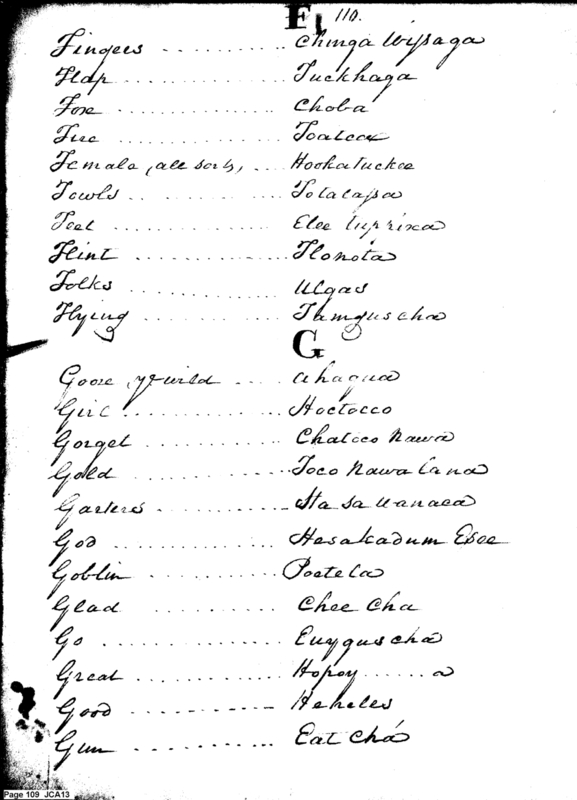 F 110.
Fingers .......... Chinga Wipaga
Flap .......... Tuckhaga
Fox .......... Choba
Fire .......... Toatcax
Female, (all sorts, ... Hookatuckee
Fowls .......... Totalapa
Feet .......... Elee Cuprixa
Flint .......... Tlonota
Folks .......... Ulgas
Flying .......... Tamguscha
G
Goose, ye wild .... Ahagua
Girl .......... Hoctocco
Gorget .......... Chatoco Nawa
Gold .......... Toco Nawa Lana
Garters ..........
God .......... Hesakadum Esee
Goblin .......... Poetela
Glad .......... Chee Cha
Go .......... Euyguschá
Great .......... Hopoy ...... a
Good .......... Heneles
Gun .......... Eat Chá
Page 109 JCA13